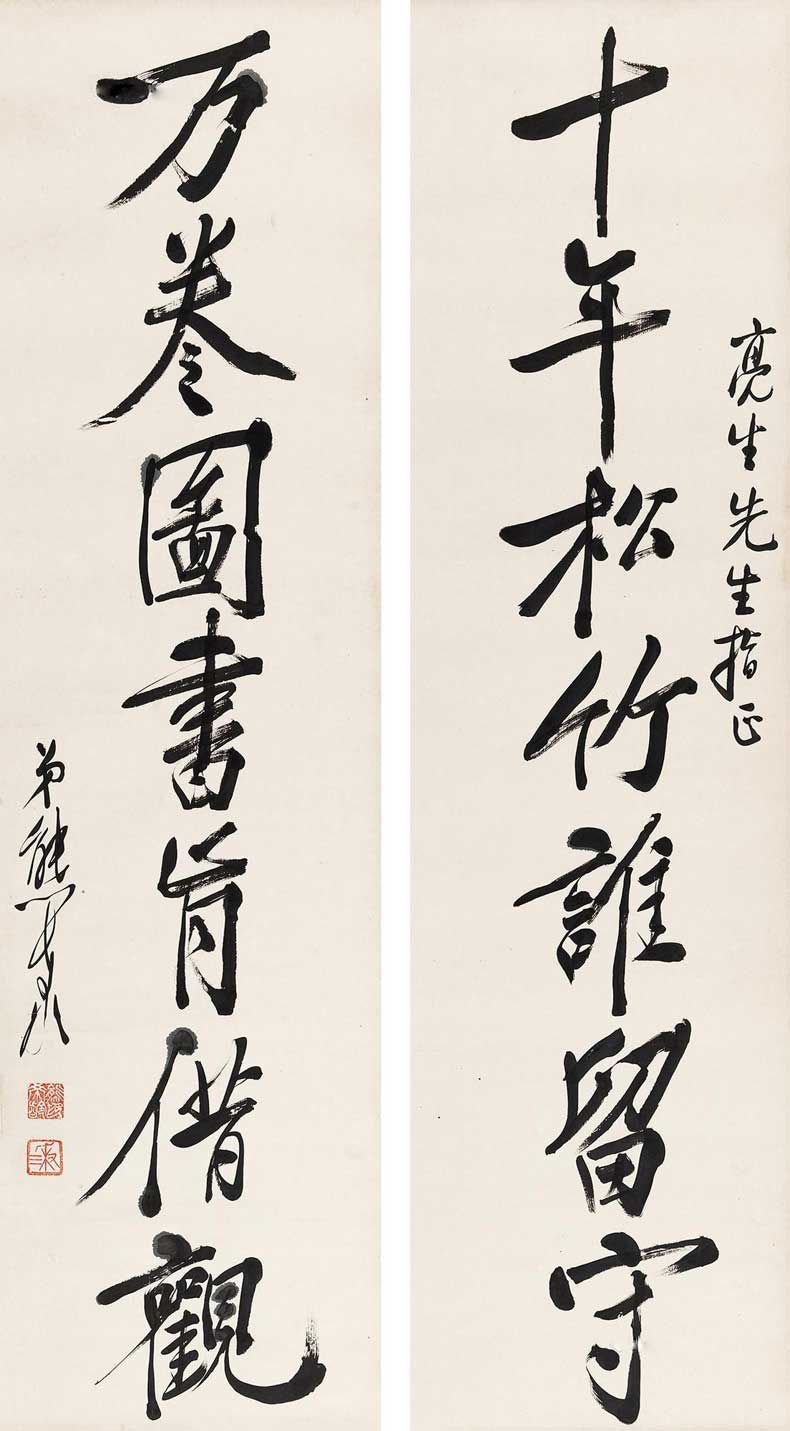 亮生先生指正
十年松竹誰留守
万卷圖書肯借觀
弟熊希齡